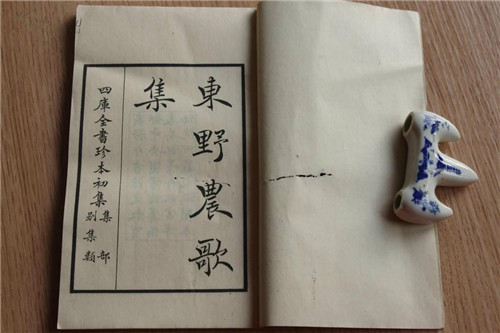 東野農歌
集
四庫全書珍本初集集部
別集類